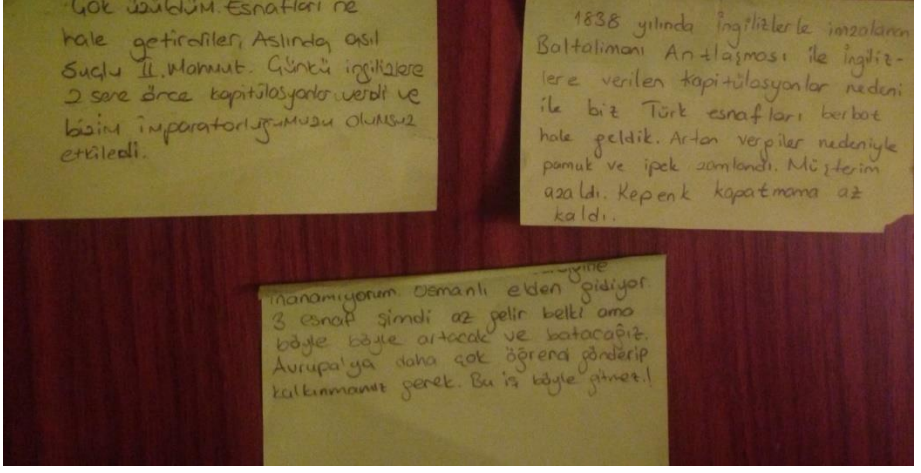 Çok üzüldüm. Esnafları ne
hale getirdiler, Aslında asıl
Suçlu II. Mahmut. Günkü ingilizlere
2 sene önce kapitülasyonlar verdi ve
bizim imparatorluğumuzu olumsuz
etkiledi.
1838 yılında İngilizlerle imzalanan
Baltalimanı Antlaşması ile İngiliz-
lere verilen kapitülasyonlar nedeni
ile biz Türk esnafları berbat
hale geldik. Artan vergiler nedeniyle
pamuk ve ipek zamlandı. Müşterim
azaldı. Kepenk kapatmama az
kaldı.
inanamıyorum. Osmanlı elden gidiyor.
3 esnaf şimdi az gelir belki ama
böyle böyle artacak ve batacağız.
Avrupa'ya daha çok öğrenci gönderip
kalkınmamız gerek. Bu iş böyle gitmez!